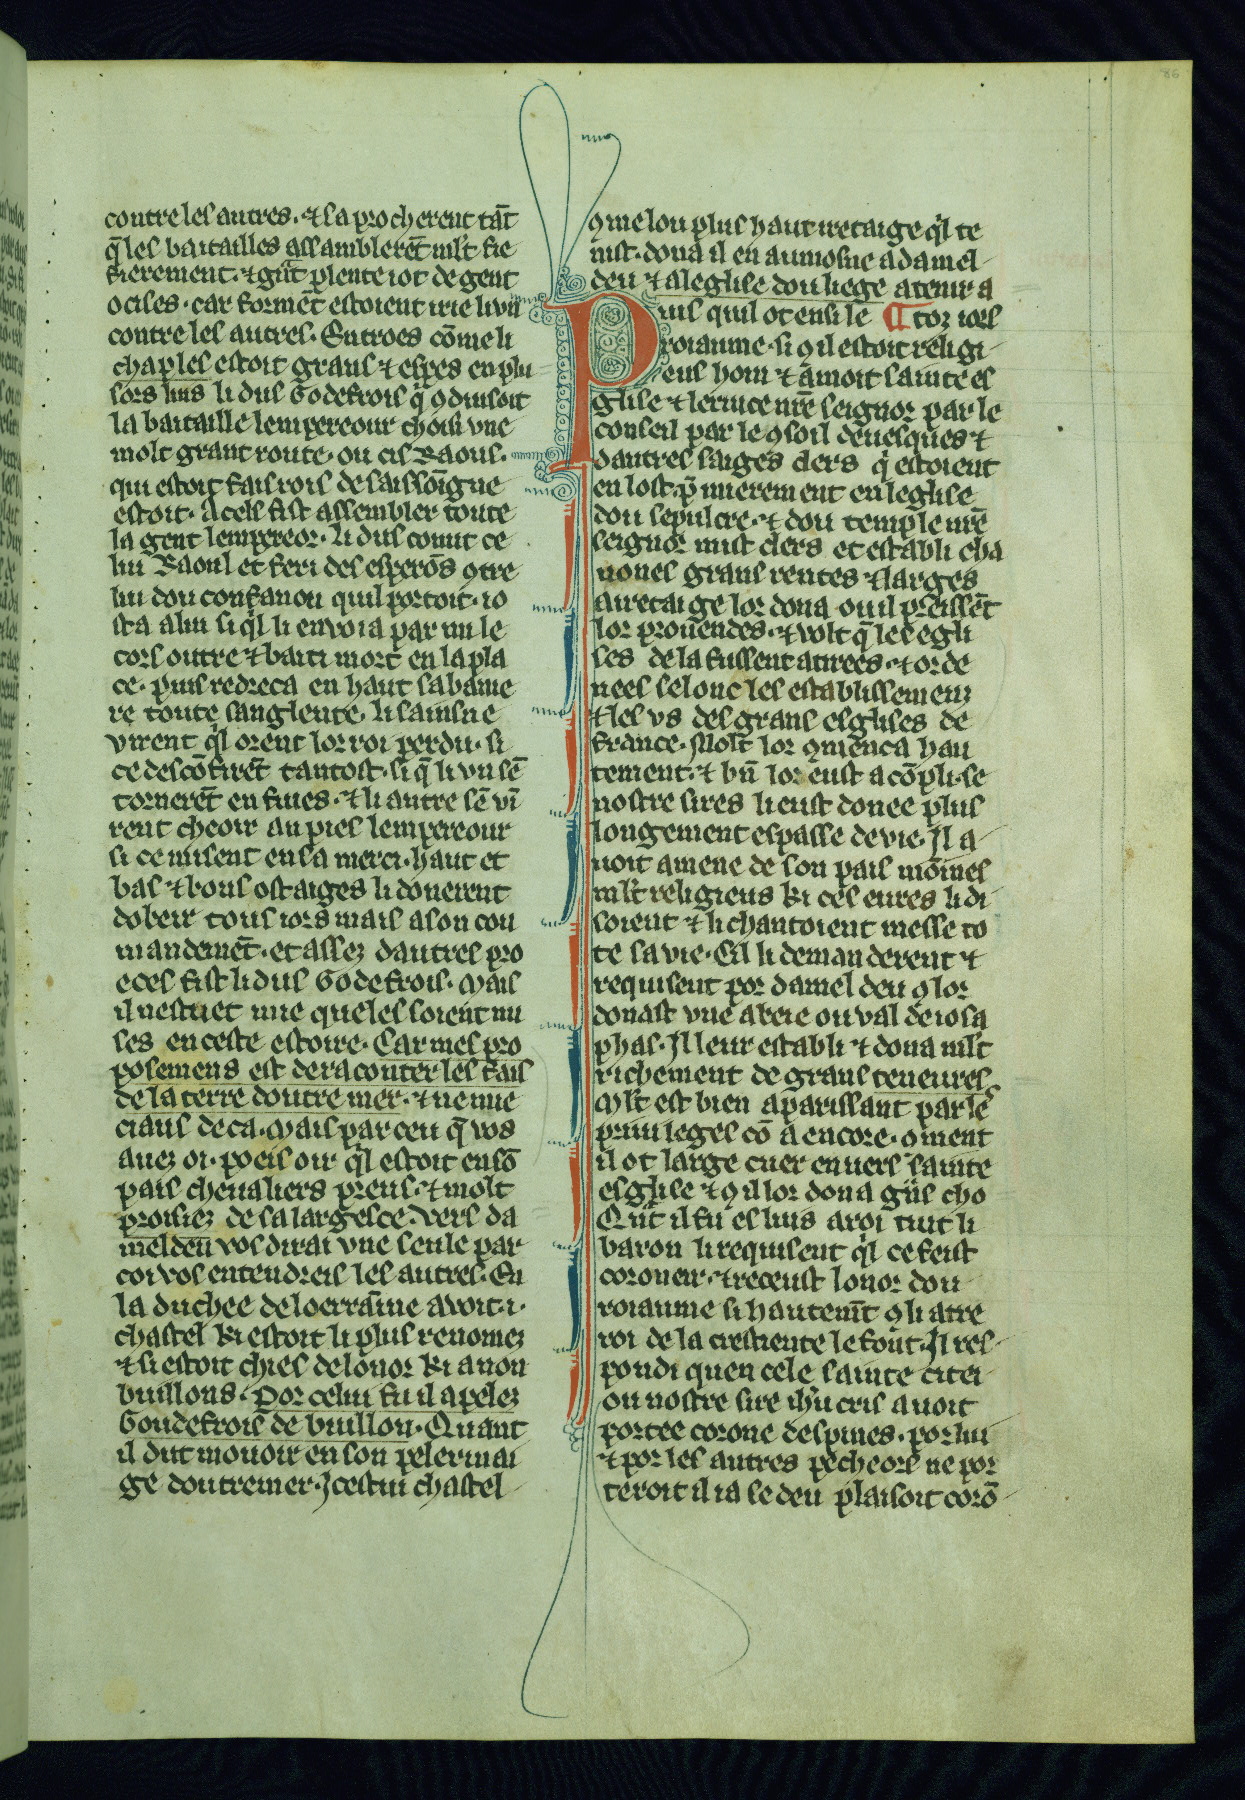 contre les autres. ⁊ sa procherent tāt
q̄ les batailles assamblerēt ml̄t fie
fierement. ⁊ gn̄t plente iot de gent
ocises. car formēt estoient irie li vn
contre les autres. Entroes cōme li
chaples estoit grans ⁊ espes en plu
sors lius li dus Godefrois q̇ ꝯduisoit
la bataille lempereour choisi vne
molt grant route. ou cis Raous.
qui estoit fais rois de saissoīgne
estoit. A cels fist assembler toute
la gent lempereor. li dus conut ce
lui Raoul et feri des esperōs ꝯtre
lui dou confanon quil portoit. io
sta a lui si q̇l li envoia par mi le
cors outre ⁊ bati mort en la pla
ce. puis redreca en haut sa banie
re toute sanglente. li saisne
virent q̇l orent lor roi perdu. si
ce descōfirēt tantost. si q̄ li vn sē
tornerēt en fuies. ⁊ li autre sē vī
rent cheoir au pies lempereour
si ce misent en sa merci. haut et
bas ⁊ bons ostaiges li donerent
dobeir tous iors mais a son cou
mandemēt. et assez dautres pro
eces fist li dus Godefrois. Mais
il nestuet mie queles soient mi
ses en ceste estoire. Car mes pro
posemens est de raconter les fais
de la terre doutre mer. ⁊ ne mie
ciaus de ca. Mais par ceu q̄ vos
auez oi. poeis oir q̇l estoit en sō
pais cheualiers preus. ⁊ molt
proisiez de sa largesce. vers da
meldeu vos dirai vne seule par
coi vos entendreis les autres. En
la duchee de loerraīne avoit .i.
chastel ki estoit li plus renomez
⁊ si estoit chies de lonor ki a non
buillons. Por celui fu il apelez
Goudefrois de buillon. Quant
il dut mouoir en son pelerinai
ge doutremer. Icestui chastel
ꝯme lou plus haut iretaige q̇l te
nist. dona il en aumosne a damel
deu ⁊ a leglise dou liege a tenir a
Puis quil ot ensi le ¶ toz iors
roiaume. si ꝯ il estoit religi
eus hom ⁊ āmoit sainte es
glise ⁊ seruice nr̄e seignor par le
conseil par le ꝯsoil deuesques ⁊
dautres saiges clers q̇ estoient
en lost. p̄mierement en leglise
dou sepulcre. ⁊ dou temple nr̄e
seignor mist clers et establi cha
nones grans rentes ⁊ larges
airetaige lor dona ou il preissēt
lor prouendes. ⁊ volt q̄ les egli
ses de la fussent atirees. ⁊ orde
nees selonc les establissemenz
⁊ les vs des grans esglises de
france. Molt lor ꝯmenca hau
tement. ⁊ bn̄ lor eust acōpli. se
nostre sires li eust donee plus
longement espasse de vie. Il a
uoit amene de son pais moīnes
ml̄t religieus ki ces eures li di
soient ⁊ li chantoient messe to
te sa vie. Cil li demanderent ⁊
requisent por damel deu ꝯ lor
donast vne abeie ou val de iosa
phas. Il leur establi ⁊ dona ml̄t
richement de grans teneures
Ml̄t est bien aparissant par le
priuileges cō a encore. ꝯment
il ot large cuer enuers sainte
esglise ⁊ ꝯ il lor dona gn̄s cho
Qn̄t il fu eslius a roi tuit li
baron li requisent q̇l ce feist
coroneir. ⁊ receust lonor dou
roiaume si hautem̄t ꝯ li atre
roi de la crestiente le font. Il res
pondi quen cele sainte citei
ou nostre sire ih̄u cris auoit
portee corone despines. por lui
⁊ por les autres pecheors ne por
teroit il ia se deu plaisoit corō